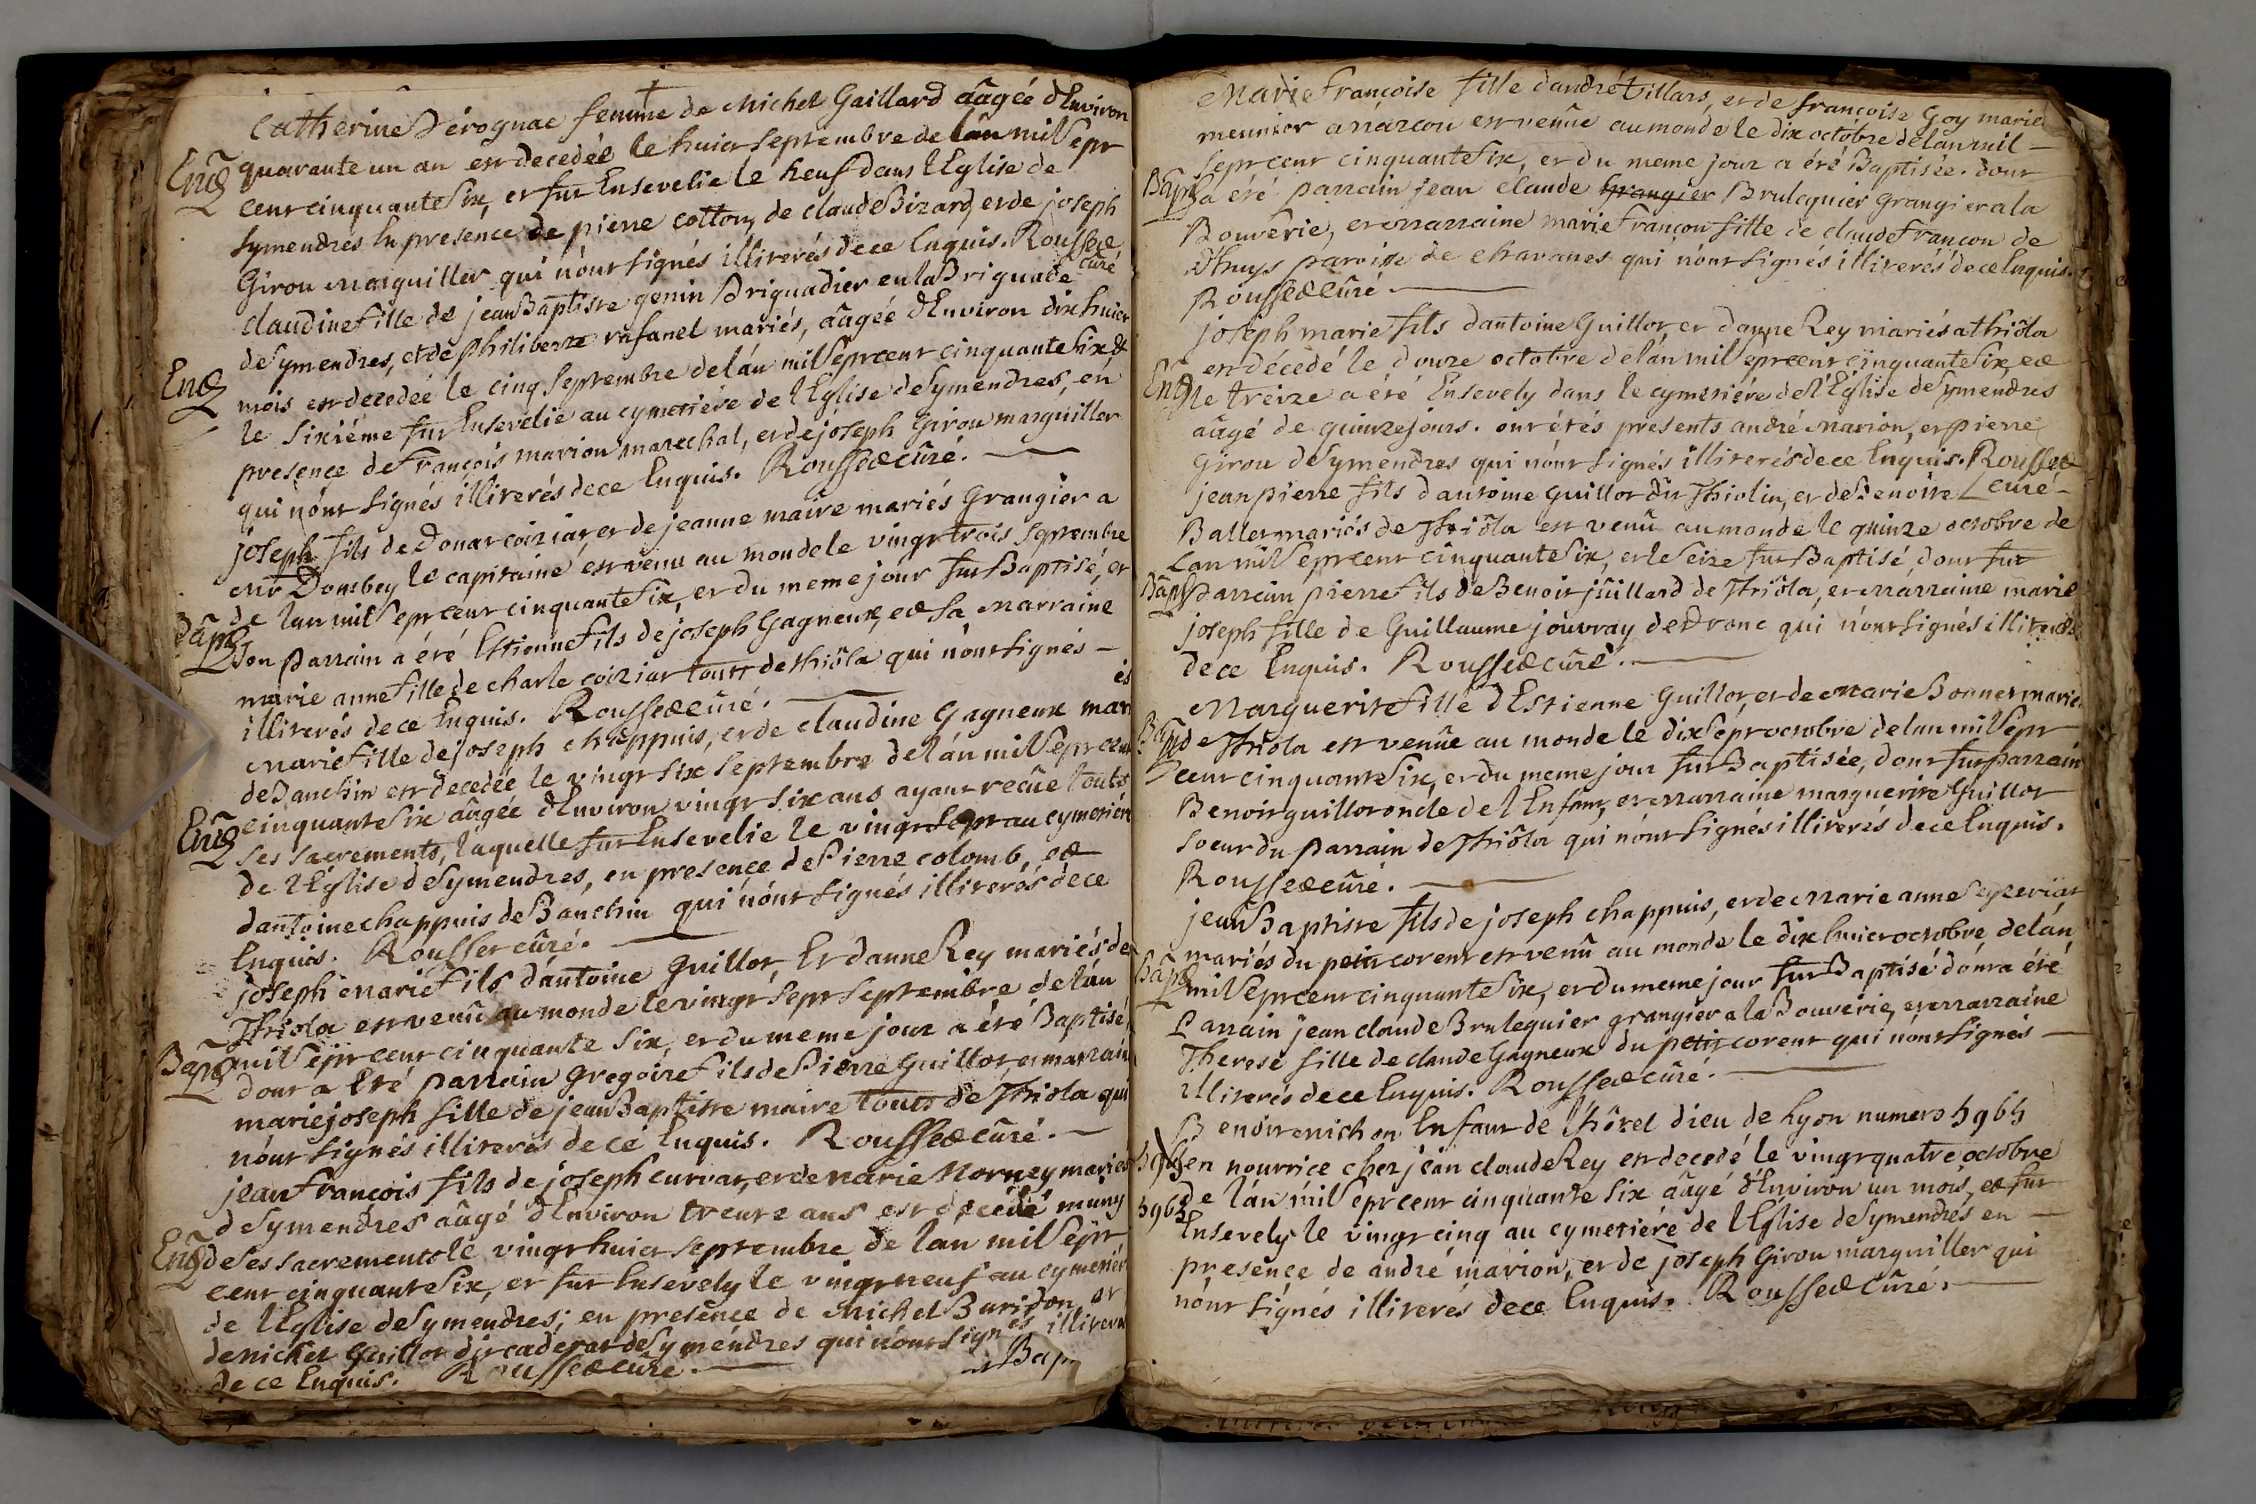 Catherine Derognac femme de Michel Gaillard aâgée d'Environ
Ens quarante un an est decedée le huict septembre de lan mil sept
cent cinquante six, et fut Ensevelie le neuf dans l'Eglise de
symendres En presence de pierre cotton, de claude Bizard, et de joseph
Girou marguiller qui n'ont signés illiterés de ce Enquis. Rousset curé
claudine fille de jean Baptiste genin Briguadier en la Briguade
de symendres, et de philiberte rafanel mariés, aâgée d'Environ dix huict
Ens mois est decedée le cinq septembre de lán mil sept cent cinquante six &
le sixiéme fut Ensevelie au cymetiére de l'Eglise de symendres, en
presence de François marion marechal, et de joseph Girou marguiller
qui n'ont signés illiterés de ce Enquis. Rousset curé.
joseph fils de Donat coiziat et de jeanne maire mariés Grangier a
Mr Dombey le capitaine est venu au monde le vingt trois septembre
Bapt de lan mil sept cent cinquante six, et du meme jour fut Baptisé, et
son parrain a été Estienne fils de joseph Gagneux, et sa marraine
marie anne fille de charle coiziat touts de thióla qui n'ont signés
illiterés de ce Enquis. Rousset curé.
Marie fille de joseph chappuis, et de claudine Gagneux mariés
de Banchin est decedée le vingt six septembre de lán mil sept cent
Ens cinquante six aâgée d'Environ vingt six ans ayant recüe touts
ses sacrements, laquelle fut Ensevelie le vingt sept au cymetiére
de l'Eglise de symendres, en presence de Pierre colomb, et
dantoine chappuis de Banchin qui n'ont signés illiterés de ce
Enquis. Rousset curé.
joseph marie fils dántoine Guillot, Et d'anne Rey mariés de
Thiola est venû au monde le vingt sept septembre de lán
Bapt mil sept cent cinquante six, et du meme jour a été Baptisé,
dont a Eté parrain gregoire fils de Pierre Guillot, et marraine
marie joseph fille de jean Baptiste maire touts de Thiola qui
n'ont signés illiterés de ce Enquis. Rousset curé.
jean François fils de joseph curvat, et de marie Morney mariés
de symendres aâgé d'Environ trente ans est decédé muny
Ens de ses sacrements le vingt huict septembre de lan mil sept
cent cinquante six, et fut Ensevely le vingt neuf au cymetiére
de l'Eglise de symendres, en presence de Michel Buridon, et
de michel Guillot dit cadet de symendres qui n'ont signés illiterés
de ce Enquis. Rousset curé.
Bap
Marie Françoise fille d'andré Villars, et de françoise Goy mariés
meunier a narcon est venûe au monde le dix octobre de lan mil
sept cent cinquante six, et du meme jour a été Baptisée. dont
Bapt a été parrain jean claude Grangier Brulequier grangier a la
Bouverie, et marraine marie Françon fille de claude Françon de
thuys paroisse de chavanes qui n'ont signés illiterés de ce Enquis.
Rousset curé
joseph marie fils dantoine Guillot, et danne Rey mariés a thióla
est décedé le douze octobre de lán mil sept cent cinquante six, et
Ens le treize a été Ensevely dans le cymetiére de l'Eglise de symendres
aâgé de quinze jours. ont étés presents andré marion, et pierre
Girou de symendres qui n'ont signés illiterés de ce Enquis. Rousset
curé
jean pierre fils d'antoine Guillot dit Thiolin, et de Benoite
Ballet mariés de Thióla est venû au monde le quinze octobre de
Lan mil sept cent cinquante six, et le seize fut Baptisé, dont fut
Bapt Parrain pierre fils de Benoit juillard de Thióla, et marraine marie
joseph fille de Guillaume jouvray de Dronc qui n'ont signés illiterés
de ce Enquis. Rousset curé.
Marguerite fille d'Estienne Guillot, et de marie Bonnet mariés
Bapt de Thióla est venûe au monde le dix sept octobre de lan mil sept
cent cinquante six, et du meme jour fut Baptisée, dont fut parrain
Benoit guillot oncle de l'Enfant, et marraine marguerite Guillot
soeur du parrain de Thióla qui n'ont signés illiterés de ce Enquis.
Rousset curé.
jean Baptiste fils de joseph chappuis, et de marie anne Seyzeriat
mariés du petit corent est venû au monde le dix huict octobre de lán
Bapt mil sept cent cinquante six, et du meme jour fut Baptisé dont a été
Parrain jean claude Brulequier grangier a la Bouverie, et marraine
Therese fille de claude Gagneux du petit corent qui n'ont signés
illiterés de ce Enquis. Rousset curé.
Benoit michon Enfant de l'hôtel dieu de Lyon numero 5965
en nourrice chez jean claude Rey est decedé le vingt quatre octobre
de lán mil sept cent cinquante six aâgé d'Environ un mois, et fut
Ensevely le vingt cinq au cymetiére de l'Eglise de symendres en
presence de andré marion, et de joseph Girou marguiller qui
n'ont signés illiterés de ce Enquis. Rousset Curé.